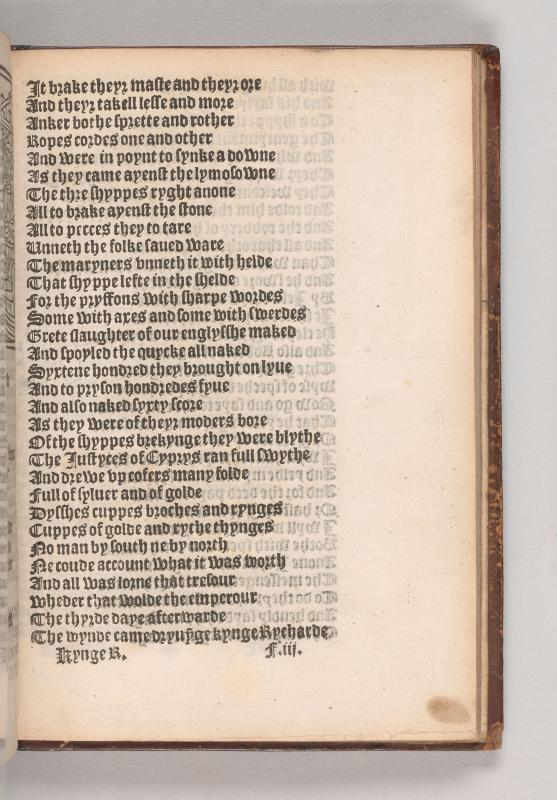 It brake theyr maste and theyr ore
And theyr takell lesse and more
Anker bothe sprette and rother
Ropes cordes one and other
And were in poynt to synke a downe
As they came ayenst the lymosowne
The thre shyppes ryght anone
All to brake ayenst the stone
All to peces they to tare
Unneth the folke saued ware
The maryners vnneth it with helde
That shyppe lefte in the shelde
For the pryffons with sharpe wordes
Some with axes and some with swerdes
Grete slaughter of our englysshe maked
And spoyled the quycke all naked
Syxtene hondred they brought on lyue
And to pryson hondredes fyue
And also naked syxty score
As they were of theyr moders bore
Of the shyppes brekynge they were blythe
The Iustyces of Cyprys ran full swythe
And drewe vp cofers many folde
Full of syluer and of golde
Dysshes cuppes broches and rynges
Cuppes of golde and ryche thynges
No man by south ne by north
Ne coude account what it was worth
And all was lorne that tresour
wheder that wolde the emperour
The thyrde daye afterwarde
The wynde came dryuȳge kynge Rycharde
Kynge R. F.iij.